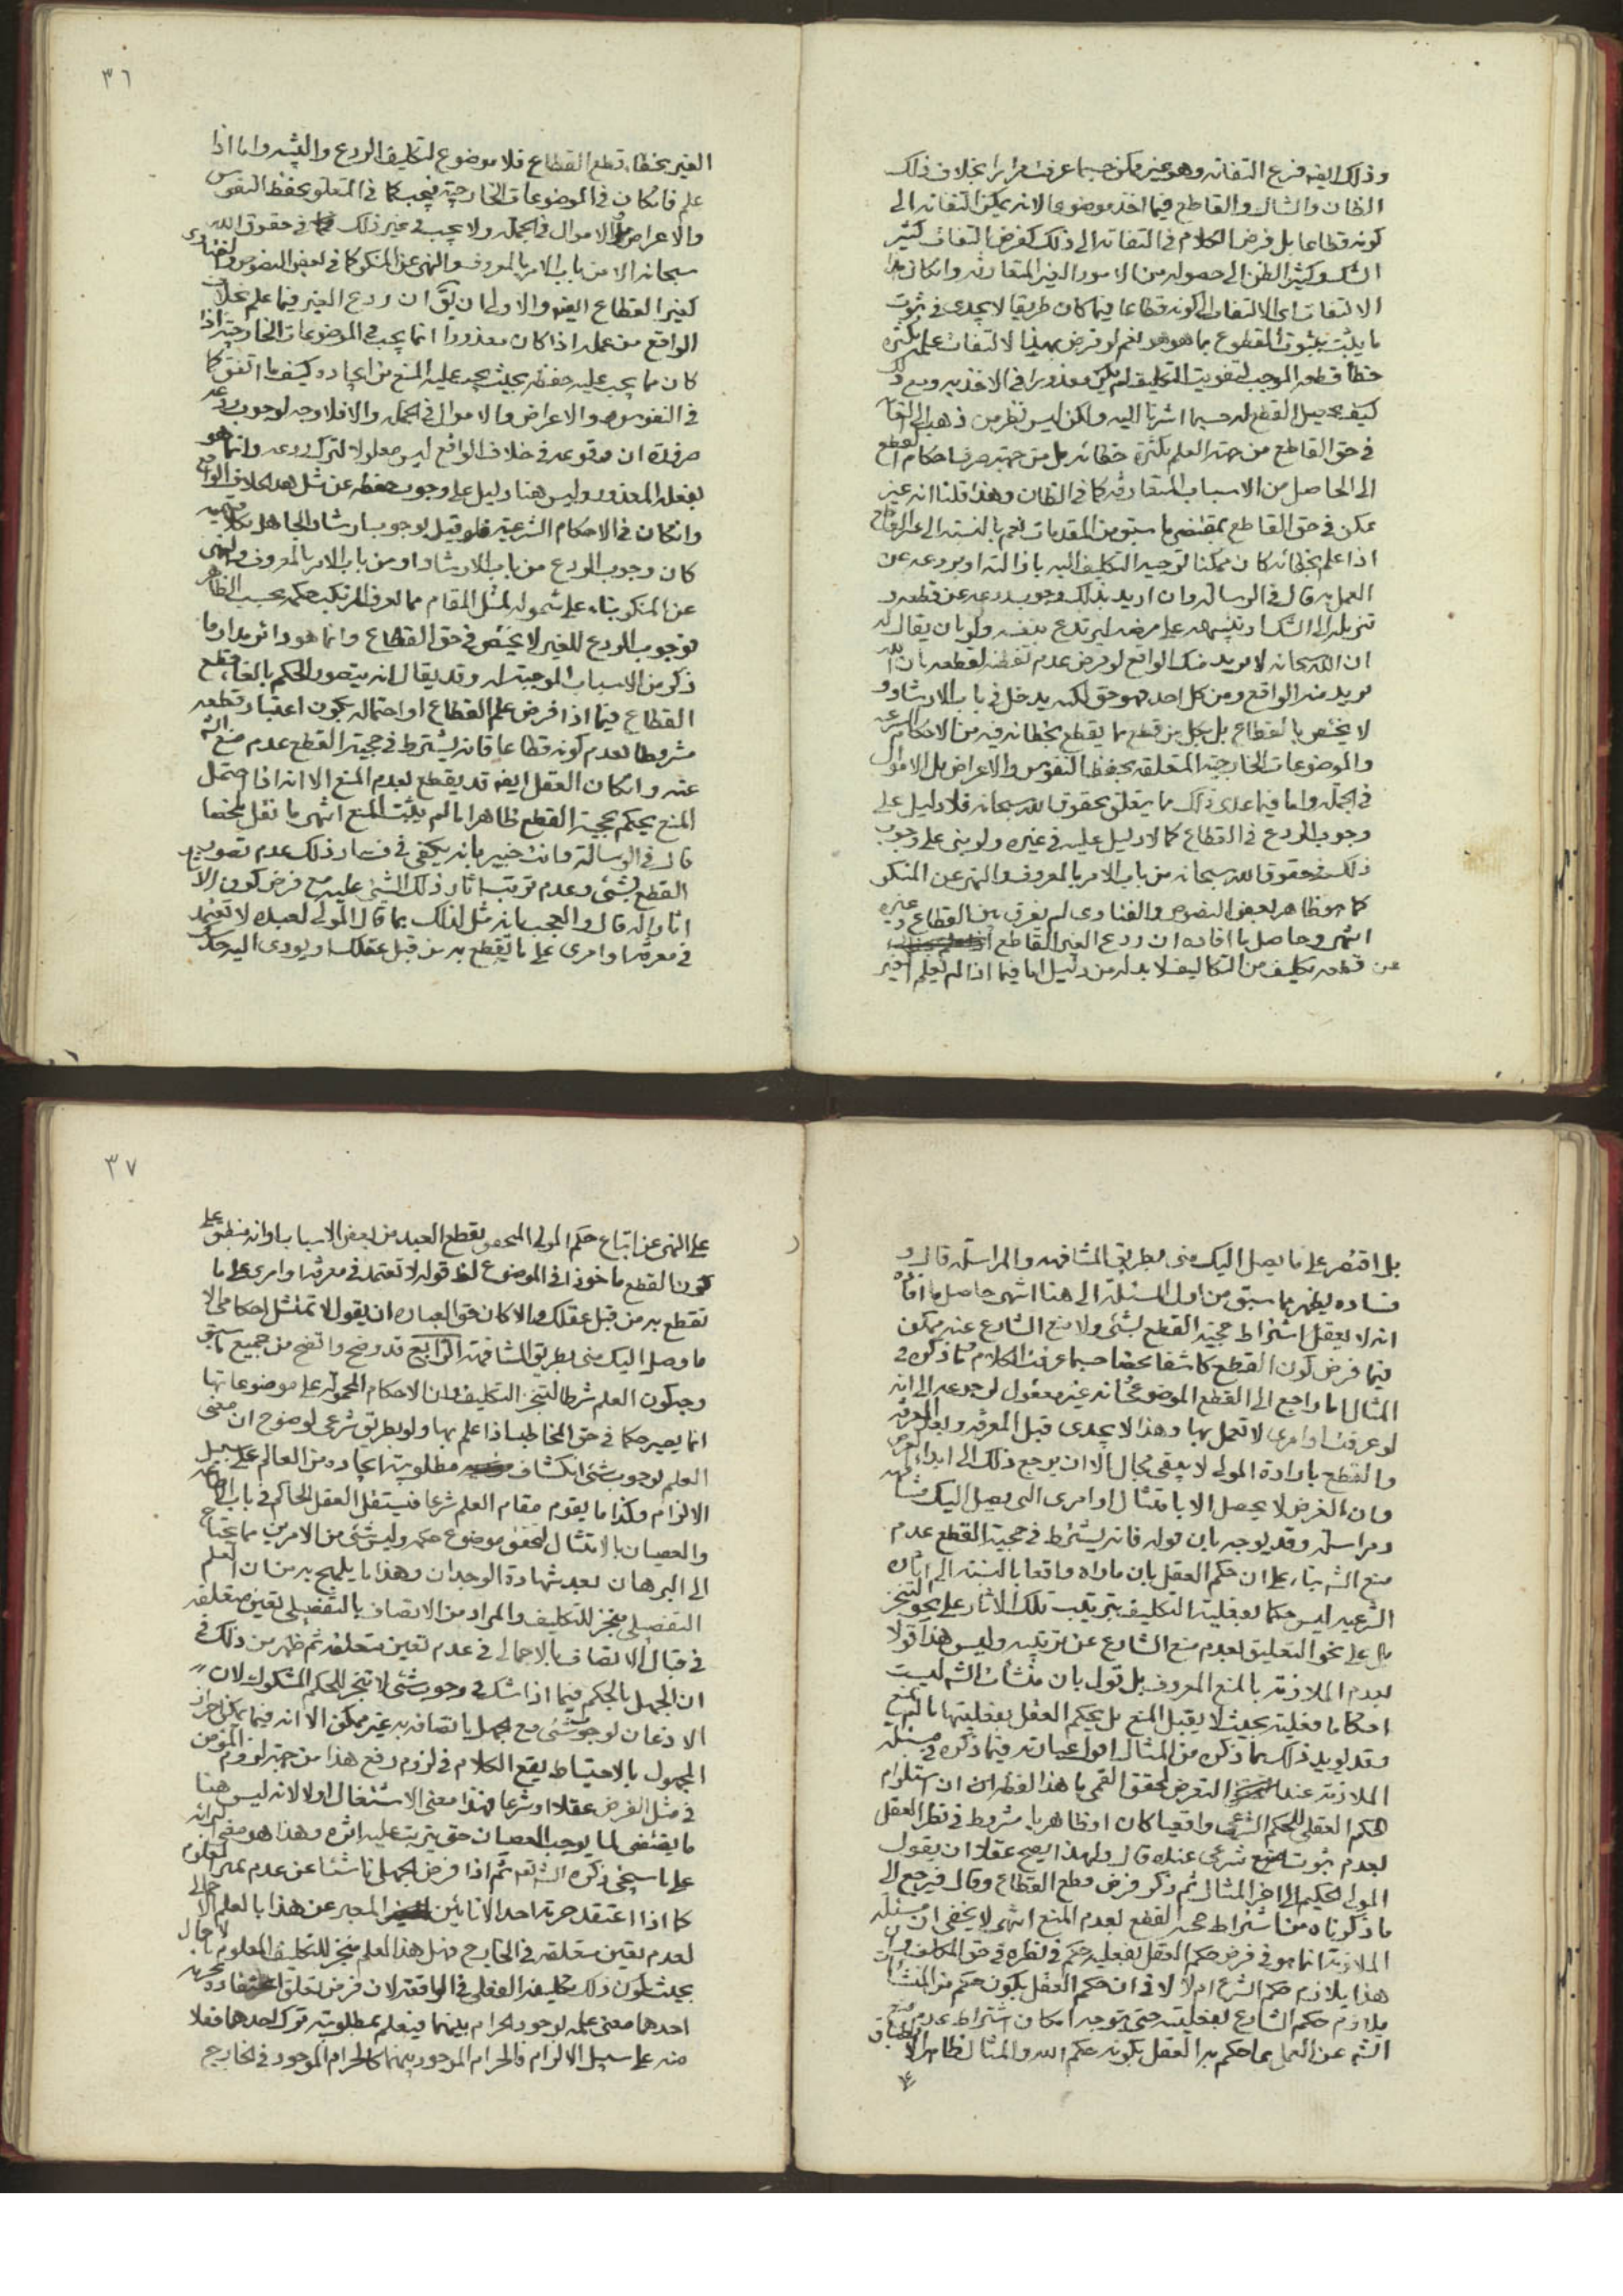 وذلك ايضه فرع التفاته وهو غير ممكن حسبما عرفت مرارا بخلاف ذلك
الظان والشاك والقاطع فيما اخذ موضوعا لانه يمكن التفاته الى
كونه قطاعا بل فرض الكلام في التفاته الى ذلك كفرض التفات كثير
الشك وكثير الظن الى حصوله من الامور الغير المتعارفة وانكان هذا
الالتفات اى الالتفات الى كونه قطاعا فيما كان طريقا لا يجدى في ثبوت
ما يثبت بثبوت المقطوع بما هو هو نعم لو فرض بهذا الالتفات علم بكثرة
خطأ قطعه الموجب لتفويت التكليف لم يكن معذورا في الاخذ به ومع ذلك
كيف يحصل القطع له حسبما اشرنا اليه ولكن ليس نظر من ذهب الى الغاء
في حق القاطع من جهة العلم بكثرة خطائه بل من جهة صرف احكام القطع
الى الحاصل من الاسباب المتعارفة كما في الظان وهذا قلنا انه غير
ممكن في حق القاطع بمقتضى ما سبق من المقدمات نعم بالنسبة الى غير القاطع
اذا علم بخطائه كان ممكنا توجيه التكليف اليه بازالته او بردعه عن
العمل به قال في الرسالة وان اريد بذلك وجوب ردعه عن قطعه و
تنزيله الى الشك او تنبيهه على مرضه ليرتدع بنفسه ولو بان يقال له
ان الله سبحانه لا يريد منك الواقع لو فرض عدم تفطنه لقطعه بان الله
يريد منه الواقع ومن كل احد فهو حق لكنه يدخل في باب الارشاد و
لا يختص بالقطاع بل بكل من قطع بما يقطع بخطائه فيه من الاحكام الشرعية
والموضوعات الخارجية المتعلقة بحفظ النفوس والاعراض بل الاموال
في الجملة واما فيما عدى ذلك مما يتعلق بحقوق الله سبحانه فلا دليل على
وجوب الردع في القطاع كما لا دليل عليه في غيره ولو بنى على وجوب
ذلك في حقوق الله سبحانه من باب الامر بالمعروف والنهى عن المنكر
كما هو ظاهر بعض النصوص والفتاوى لم يفرق بين القطاع وغيره
انتهى وحاصل ما افاده ان ردع الغير القاطع
عن قطعه تكليف من التكاليف لا بد له من دليل اما فيما اذا لم يعلم الغير
٣٦
الغير بخطاء قطع القطاع فلا موضوع لتكليف الردع والتنبيه واما اذا
علم فانكان في الموضوعات الخارجية فيجب كما في المتعلق بحفظ النفوس
والاعراض والاموال في الجملة ولا يجب في غير ذلك في حقوق الله
سبحانه الا من باب الامر بالمعروف والنهى عن المنكر كما في بعض النصوص والفتاوى
كغير القطاع ايضه والاولى ان يق ان ردع الغير فيما علم بخلاف
الواقع من عمله اذا كان معذورا انما يجب في الموضوعات الخارجية اذا
كان مما يجب عليه حفظه بحيث يجب عليه المنع من ايجاده كيف ما اتفق كما
في النفوس والاعراض والاموال في الجملة والا فلا وجه لوجوب ردعه
ضرورة ان وقوعه في خلاف الواقع ليس معلولا لترك ردعه وانما هو
بفعله المعذور وليس هنا دليل على وجوب حفظه عن مثل هذا خلاف الواقع
وانكان في الاحكام الشرعية فلو قيل بوجوب ارشاد الجاهل بكلا قسميه
كان وجوب الردع من باب الارشاد او من باب الامر بالمعروف والنهى
عن المنكر بناء على شموله لمثل المقام مما لم يعرف المرتكب حكمه بحسب الظاهر
فوجوب الردع للغير لا يختص في حق القطاع وانما هو دائر مدار ما
ذكر من الاسباب الموجبة له وقد يقال انه يتصور الحكم بالغاء قطع
القطاع فيما اذا فرض علم القطاع او احتماله بكون اعتبار قطعه
مشروطا بعدم كونه قطاعا فانه يشترط في حجية القطع عدم منع الش
عنه وانكان العقل ايضه قد يقطع بعدم المنع الا انه اذا احتمل
المنع يحكم بحجية القطع ظاهرا ما لم يثبت المنع انتهى ما نقل ملخصا
قال في الرسالة وانت خبير بانه يكفى في فساد ذلك عدم تصور
القطع بشئى وعدم ترتيب اثار ذلك الشئى عليه مع فرض كون الاثار
اثارا له قال والعجب انه مثل لذلك بما قال المولى لعبده لا تعتمد
في معرفة اوامرى على ما تقطع به من قبل عقلك او يودى اليه حدسك
بل اقتصر على ما يصل اليك منى بطريق المشافهة والمراسلة قال و
فساده يظهر مما سبق من اول المسئلة الى هنا انتهى حاصل ما افاده
انه لا يعقل اشتراط حجية القطع بشئى ولا منع الشارع عنه ممكن
فيما فرض كون القطع كاشفا محضا حسبما عرفت الكلام وما ذكره في
المثال اما راجع الى القطع الموضوعى فانه غير معقول لرجوعه الى انه
لو عرفت اوامرى لا تعمل بها وهذا لا يجدى قبل المعرفة وبعد المعرفة
والقطع بارادة المولى لا يبقى مجال الا ان يرجع ذلك الى ابداء الغرض
وان الغرض لا يحصل الا بامتثال اوامرى التى يصل اليك مشافهة
ومراسلة وقد يوجه بان قوله فانه يشترط في حجية القطع عدم
منع الش بناء على ان حكم العقل بان ما راه واقعا بالنسبة الى اثاره
الشرعية ليس حكما بفعلية التكليف بترتيب تلك الاثار على نحو التنجز
بل على نحو التعليق بعدم منع الشارع عن ترتيبه وليس هذا قولا
بعدم الملازمة بالمنع المعروف بل قول بان منشأت الش ليست
احكاما فعلية بحيث لا يقبل المنع بل يحكم العقل بفعليتها ما لم يمنع
وقد يويد ذلك بما ذكره من المثال اقول عبارته فيما ذكره في مسئلة
الملازمة عند التعرض لمحقق القمى ما هذا لفظه ان استلزام
الحكم العقلى للحكم الشرعى واقعيا كان او ظاهريا مشروط في نظر العقل
بعدم ثبوت منع شرعى عنده قال ولهذا يصح عقلا ان يقول
المولى الحكيم الى اخر المثال ثم ذكر فرض قطع القطاع وقال فيرجع الى
ما ذكرناه من اشتراط حجية القطع بعدم المنع انتهى لا يخفى ان مسئلة
الملازمة انما هو في فرض حكم العقل بفعلية حكم في نظره في حق المكلف وان
هذا يلازم حكم الشرع ام لا لا في ان حكم العقل بكون حكم من المنشأت
يلازم حكم الشارع بفعليته حتى يتوجه امكان اشتراط عدم منع
الش عن العمل بما حكم به العقل بكونه حكم الله والمثال ظاهر الانطباق
٣٧
على النهى عن اتباع حكم المولى المتحقق بقطع العبد من بعض الاسباب وانه منطبق على
كون القطع ماخوذا في الموضوع لظ قوله لا تعتمد في معرفة اوامرى على ما
تقطع به من قبل عقلك والا كان حق العبارة ان يقول لا تمتثل احكامى الا
ما وصل اليك منى بطريق المشافهة الرابع قد وضح واتضح من جميع ما سبق
وجه كون العلم شرطا لتنجز التكليف وان الاحكام المحمولة على موضوعاتها
انما يصير حكما في حق المخاطب اذا علم بها ولو بطريق شرعى لوضوح ان معنى
العلم بوجوب شئى انكشاف مطلوبية ايجاده من العالم على سبيل
الالزام وكذا ما يقوم مقام العلم شرعا فيستقل العقل الحاكم في باب الاطاعة
والعصيان بالامتثال لتحقق موضوع حكمه وليس شئى من الامرين مما يحتاج
الى البرهان بعد شهادة الوجدان وهذا ما يلهج به من ان العلم
التفصيلى منجز للتكليف والمراد من الاتصاف بالتفصيلى تعين متعلقه
في قبال الاتصاف بالاجمالى في عدم تعين متعلقه ثم ظهر من ذلك في
ان الجهل بالحكم فيما اذا شك في وجوب شئى لا تنجز للحكم المشكوك لان
الاذعان بوجوب شئى مع الجهل باتصافه به غير ممكن الا انه فيما يمكن احراز
المجهول بالاحتياط يقع الكلام في لزوم دفع هذا من جهة لزوم المؤمن
في مثل الفرض عقلا او شرعا فهذا معنى الاشتغال اولا لانه ليس هنا
ما يقتضى لما يوجب العصيان حتى يترتب عليه اثره وهذا هو معنى البرائة
على ما سيجئى ذكره انش تعه ثم اذا فرض الجهل ناشئا عن عدم تميز المعلوم
كما اذا اعتقد حرمة احد الانائين المعبر عن هذا بالعلم الاجمالى
لعدم تعين متعلقه في الخارج فهل هذا العلم منجز للتكليف المعلوم بالاجمال
بحيث يكون ذلك تكليفه الفعلى في الواقعة لان فرض تعلق اعتقاده بحرمة
احدهما معنى علمه بوجود الحرام بينهما فيعلم بمطلوبية ترك احدهما فعلا
منه على سبيل الالزام فالحرام الموجود بينهما كالحرام الموجود في الخارج